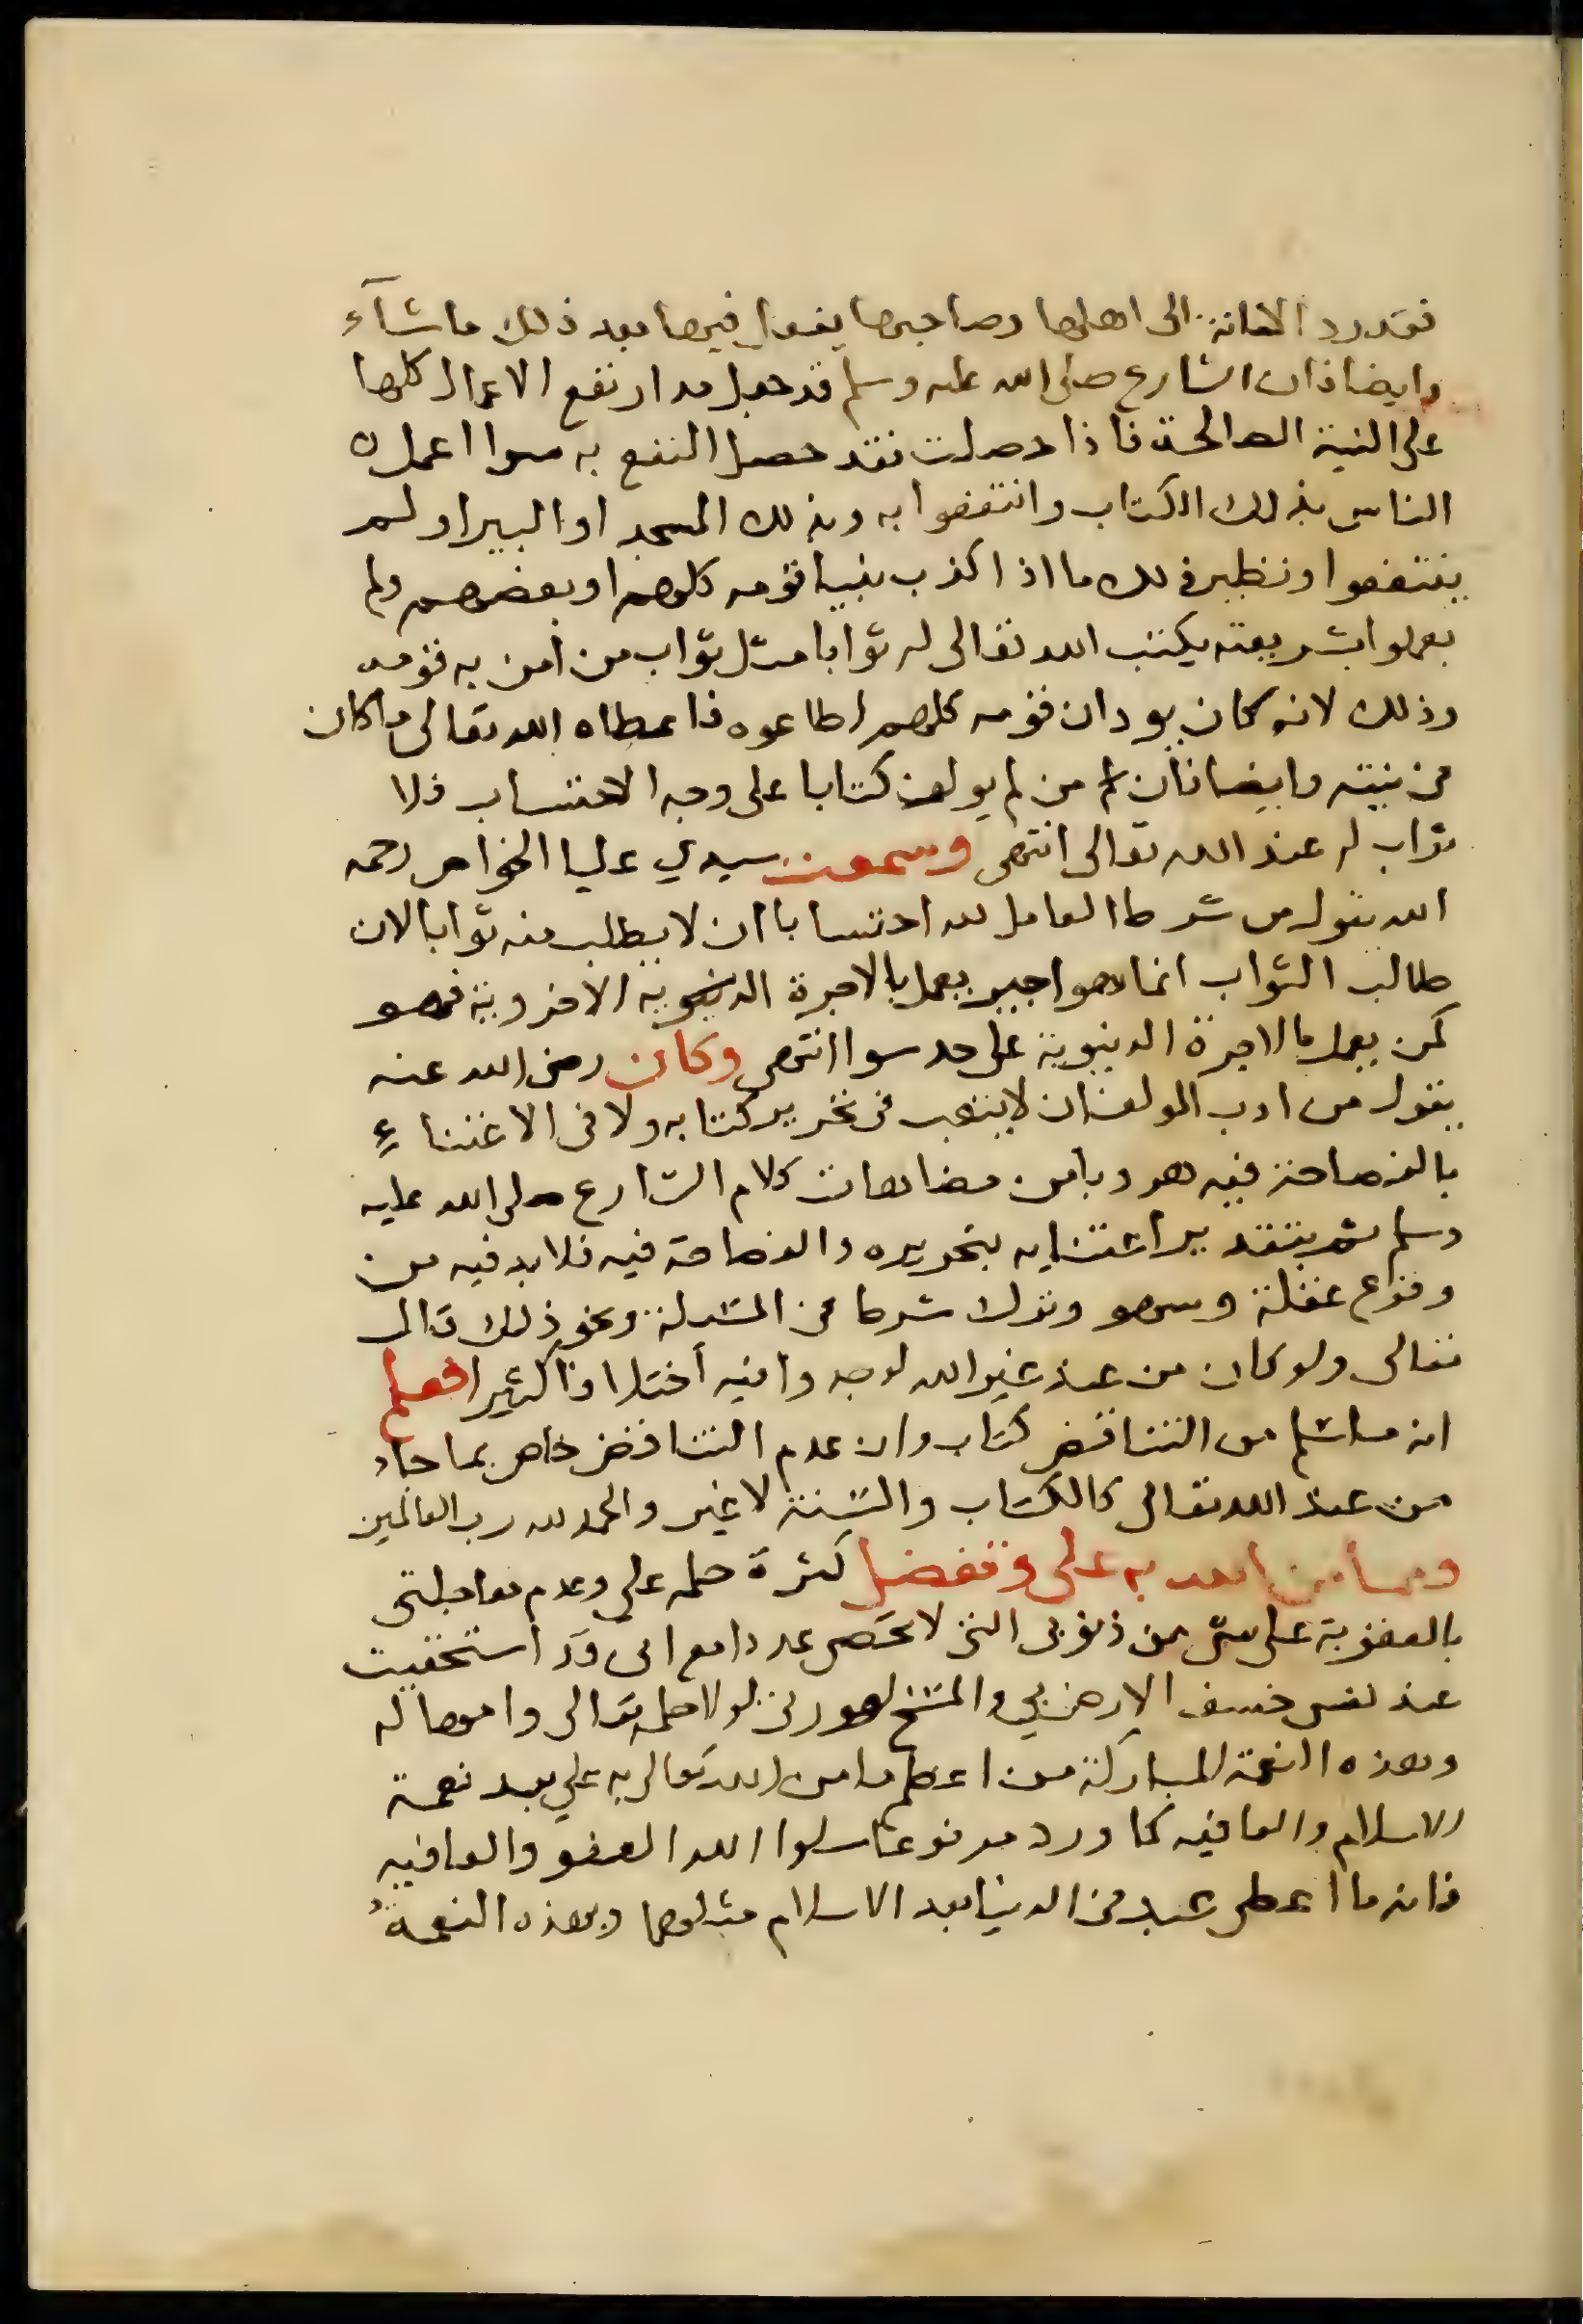 فقد رد الامانة الى اهلها وصاحبها يفعل فيها بعد ذلك ما شآء
وايضا فان الشارع صلى الله عليه وسلم قد جعل مدار نفع الاعمال كلها
على النية الصالحة فاذا حصلت فقد حصل النفع به سوا اعمل
الناس بذلك الكتاب وانتفعوا به وبذلك المسجد او البير او لم
ينتفعوا ونظير ذلك ما اذا كذب نبيا قومه كلهم او بعضهم ولم
يعملوا بشريعته يكتب الله تعالى له ثوابا مثل ثواب من امن به قومه
وذلك لانه كان يود ان قومه كلهم اطاعوه فاعطاه الله تعالى ما كان
من نيته وايضا فان من لم يولف كتابا على وجه الاحتساب فلا
ثواب له عند الله تعالى انتهى وسمعت سيدي عليا الخواص رحمه
الله يقول من شرط العامل لله احتسابا ان لا يطلب منه ثوابا لان
طالب الثواب انما هو اجير يعمل بالاجرة الاخروية فهو
كمن يعمل بالاجرة الدنيوية على حد سوا انتهى وكان رضى الله عنه
يقول من ادب المولف ان لا يتعب في تحرير كتابه ولا في الاعتناء
بالفصاحة فيه هروبا من مضاهات كلام الشارع صلى الله عليه
وسلم ثم بتقدير اعتنايه بتحريره والفصاحة فيه فلا بد فيه من
وقوع غفلة وسهو وترك شرط من المسئلة ونحو ذلك قال
تعالى ولو كان من عند غير الله لوجدوا فيه أختلافا كثيرا فعلم
انه ما سلم من التناقض كتاب وان عدم التناقض خاص بما جاء
من عند الله تعالى كالكتاب والسنة لا غير والحمد لله رب العالمين
ومما من الله به على وتفضل كثرة حلمه علي وعدم معاجلتي
بالعقوبة على شي من ذنوبي التي لا تحصى عددا مع اني قد استحقيت
عند نفسي خسف الارض بي والمسخ لصورتي لولا حلمه تعالى وامهاله
وهذه النعمة المباركة من اعظم ما من الله تعالى به علي بعد نعمة
الاسلام والعافيه كما ورد مرفوعا سلوا الله العفو والعافيه
فانه ما اعطى عبد في الدنيا بعد الاسلام مثلهما وهذه النعمة